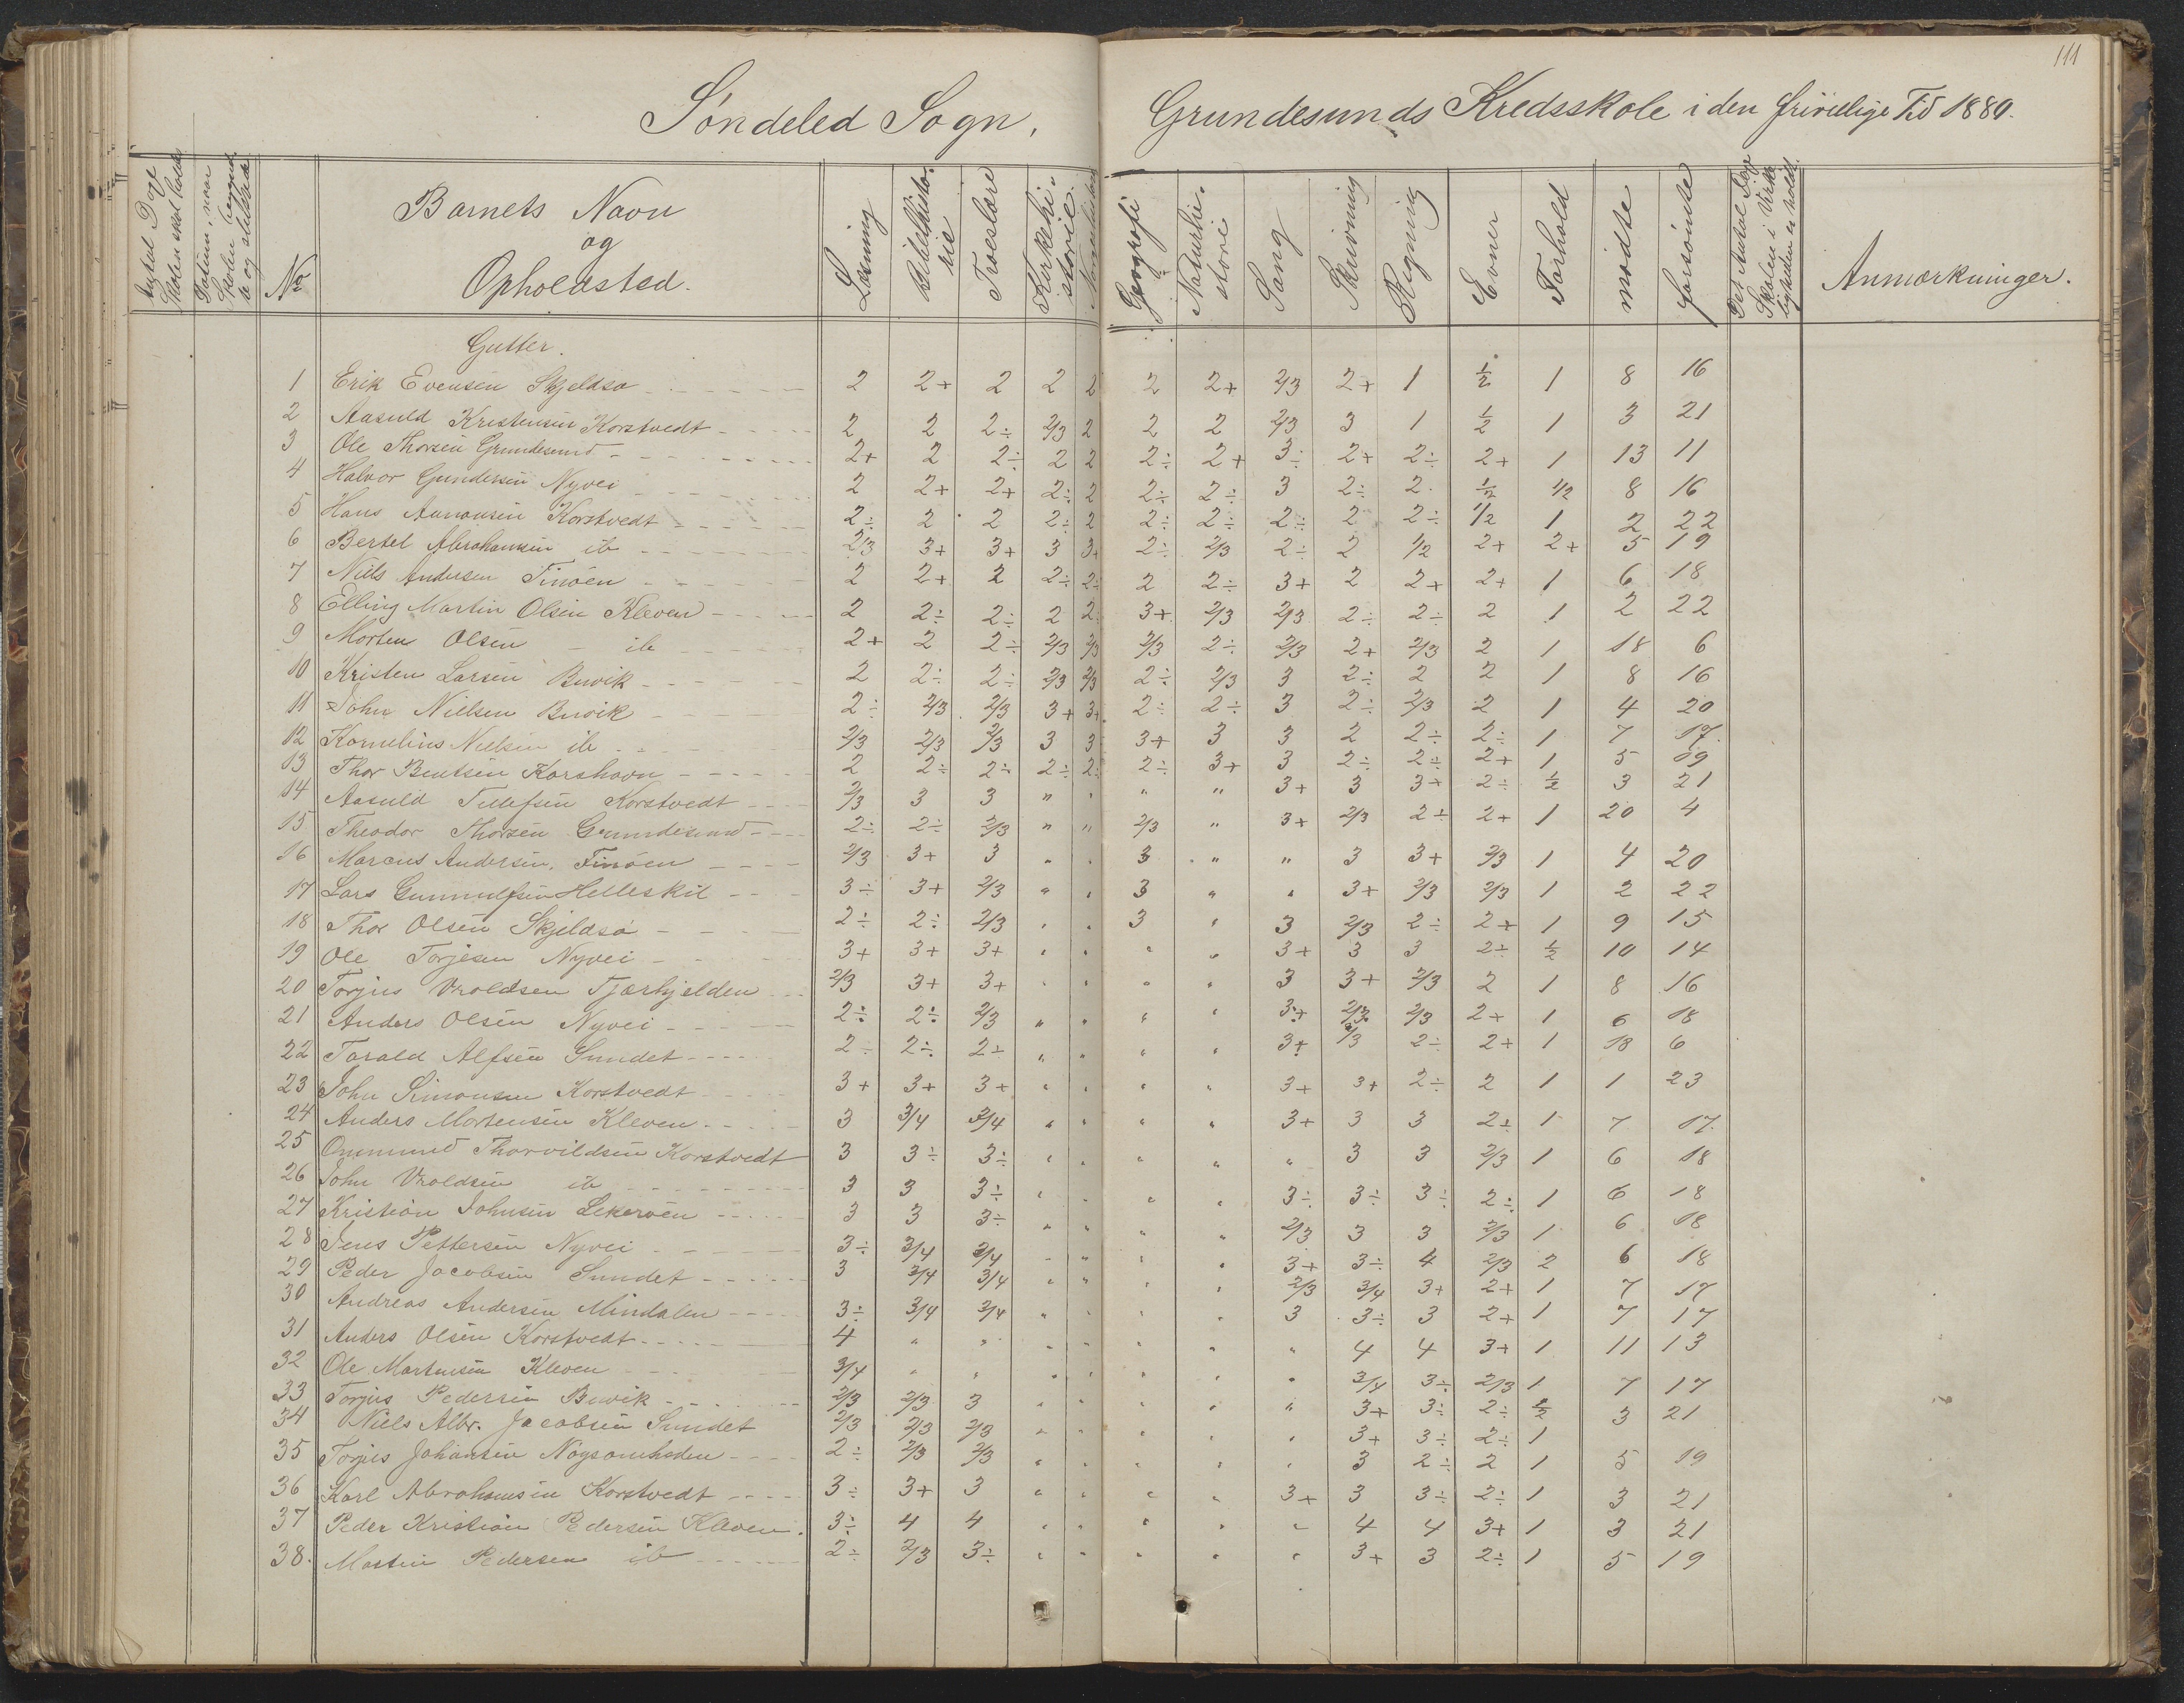 111
Söndeled Sogn, Grundesunds Kredsskole i den frivillige Tid 1880.
Antal Dage Skolen skal holdes
Datum, naar Skolen begynd. og
No
Barnets Navn og Opholdsted.
Læsning
Bibelhistorie
Troeslære
Kirkehistorie
Geografi
Naturhistorie
Sang
Skrivning
Regning
Evner
Forhold
mødte
forsömte
Det Antal Dage Skolen i Virkeligheden er holdt.
Anmærkninger.
Gutter.
1 Erik Evensen Skjeldsø 2 2+ 2 2 2 2 2+ 2/3 2+ 1 1/2 1 8 16
2 Aasuld Kristensen Korstvedt 2 2 2÷ 2/3 2 2 2 2/3 3 1 1/2 1 3 21
3 Ole Thorsen Grundesund 2+ 2 2÷ 2 2 2÷ 2+ 3÷ 2+ 2÷ 2+ 1 13 11
4 Halvor Gundersen Nyvei 2 2+ 2+ 2÷ 2 2÷ 2÷ 3 2÷ 2 1/2 1/2 8 16
5 Hans Aanonsen Korstvedt 2÷ 2 2 2÷ 2 2÷ 2÷ 2÷ 2 2÷ 1/2 1 2 22
6 Bertel Abrahamsen ib 2/3 3+ 3+ 3 3+ 2÷ 2/3 2÷ 2 1/2 2+ 2+ 5 19
7 Niels Andersen Finöen 2 2+ 2 2÷ 2÷ 2 2÷ 3+ 2 2+ 2+ 1 6 18
8 Elling Martin Olsen Kleven 2 2÷ 2÷ 2 2÷ 3+ 2/3 2/3 2÷ 2÷ 2 1 2 22
9 Morten Olsen - ib 2+ 2 2÷ 2/3 2/3 2/3 2÷ 2/3 2+ 2/3 2 1 18 6
10 Kristen Larsen Buvik 2 2÷ 2÷ 2/3 2/3 2÷ 2/3 3 2÷ 2 2 1 8 16
11 John Nielsen Buvik 2÷ 2/3 2/3 3+ 3+ 2÷ 2÷ 3 2÷ 2/3 2 1 4 20
12 Kornelius Nielsen ib 2/3 2/3 2/3 3 3 3+ 3 3 2 2÷ 2÷ 1 7 17
13 Thor Bentsen Korshavn 2 2÷ 2÷ 2÷ 2÷ 2÷ 3+ 3 2÷ 2÷ 2+ 1 5 19
14 Aasuld Tellefsen Korstvedt 2/3 3 3 " " " " 3+ 3 3+ 2÷ 1/2 3 21
15 Theodor Thorsen Grundesund 2÷ 2÷ 2/3 " " 2/3 " 3+ 2/3 2÷ 2+ 1 20 4
16 Marcus Andersen, Finöen 2/3 3+ 3 " " 3 " " 3 3+ 2/3 1 4 20
17 Lars Gunnulfsen Helleskil 3÷ 3+ 2/3 " " 3 " " 3+ 2/3 2/3 1 2 22
18 Thor Olsen Skjeldsø 2÷ 2÷ 2/3 " " 3 " 3 2/3 2÷ 2+ 1 9 15
19 Ole Torjesen Nyvei 3+ 3+ 3+ " " " " 3+ 3 3 2÷ 1/2 10 14
20 Torjus Vroldsen Tjærhjelden 2/3 3+ 3+ " " " " 3 3+ 2/3 2 1 8 16
21 Anders Olsen Nyvei 2÷ 2÷ 2/3 " " " " 3+ 2/3 2/3 2+ 1 6 18
22 Torald Alfsen Sundet 2÷ 2÷ 2÷ " " " " 3+ 2/3 2÷ 2+ 1 18 6
23 John Simonsen Korstvedt 3+ 3+ 3+ " " " " 3+ 3+ 2÷ 2 1 1 23
24 Anders Mortensen Kleven 3 3/4 3/4 " " " " 3+ 3 3 2÷ 1 7 17
25 Ommund Thorvildsen Korstvedt 3 3÷ 3÷ " " " " " 3 3 2/3 1 6 18
26 John Vroldsen ib 3 3 3÷ " " " " 3÷ 3÷ 3÷ 2÷ 1 6 18
27 Kristian Johnsen 3 3 3÷ " " " " 2/3 3 3 2/3 1 6 18
28 Jens Pettersen Nyvei 3÷ 3/4 3/4 " " " " 3+ 3÷ 4 2/3 2 6 18
29 Peder Jacobsen Sundet 3 3/4 3/4 " " " " 2/3 3/4 3+ 2+ 1 7 17
30 Andreas Andersen Mindalen 3÷ 3/4 3/4 " " " " 3 3÷ 3 2+ 1 7 17
31 Anders Olsen Korstvedt 4 " " " " " " " 4 4 3+ 1 11 13
32 Ole Martensen Kleven 3/4 " " " " " " " 3/4 3÷ 2/3 1 7 17
33 Torjus Pedersen Buvik 2/3 2/3 3 " " " " " 3+ 3÷ 2÷ 1/2 3 21
34 Niels Albr. Jacobsen Sundet 2/3 2/3 2/3 " " " " " 3+ 3÷ 2÷ 1
35 Torjus Johansen Nøysomheden 2÷ 2/3 2/3 " " " " " 3 2÷ 2 1 5 19
36 Karl Abrahamsen Korstvedt 3÷ 3+ 3 " " " " 3+ 3 3÷ 2÷ 1 3 21
37 Peder Kristian Pedersen Kleven. 3÷ 4 4 " " " " " 4 4 3+ 1 3 21
38. Martin Pedersen ib 2÷ 2/3 3÷ " " " " " 3+ 3 2÷ 1 5 19